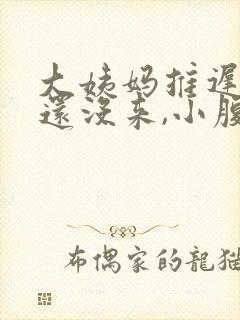 大姨妈推遲
還没来,小腹
布偶家的龍猫